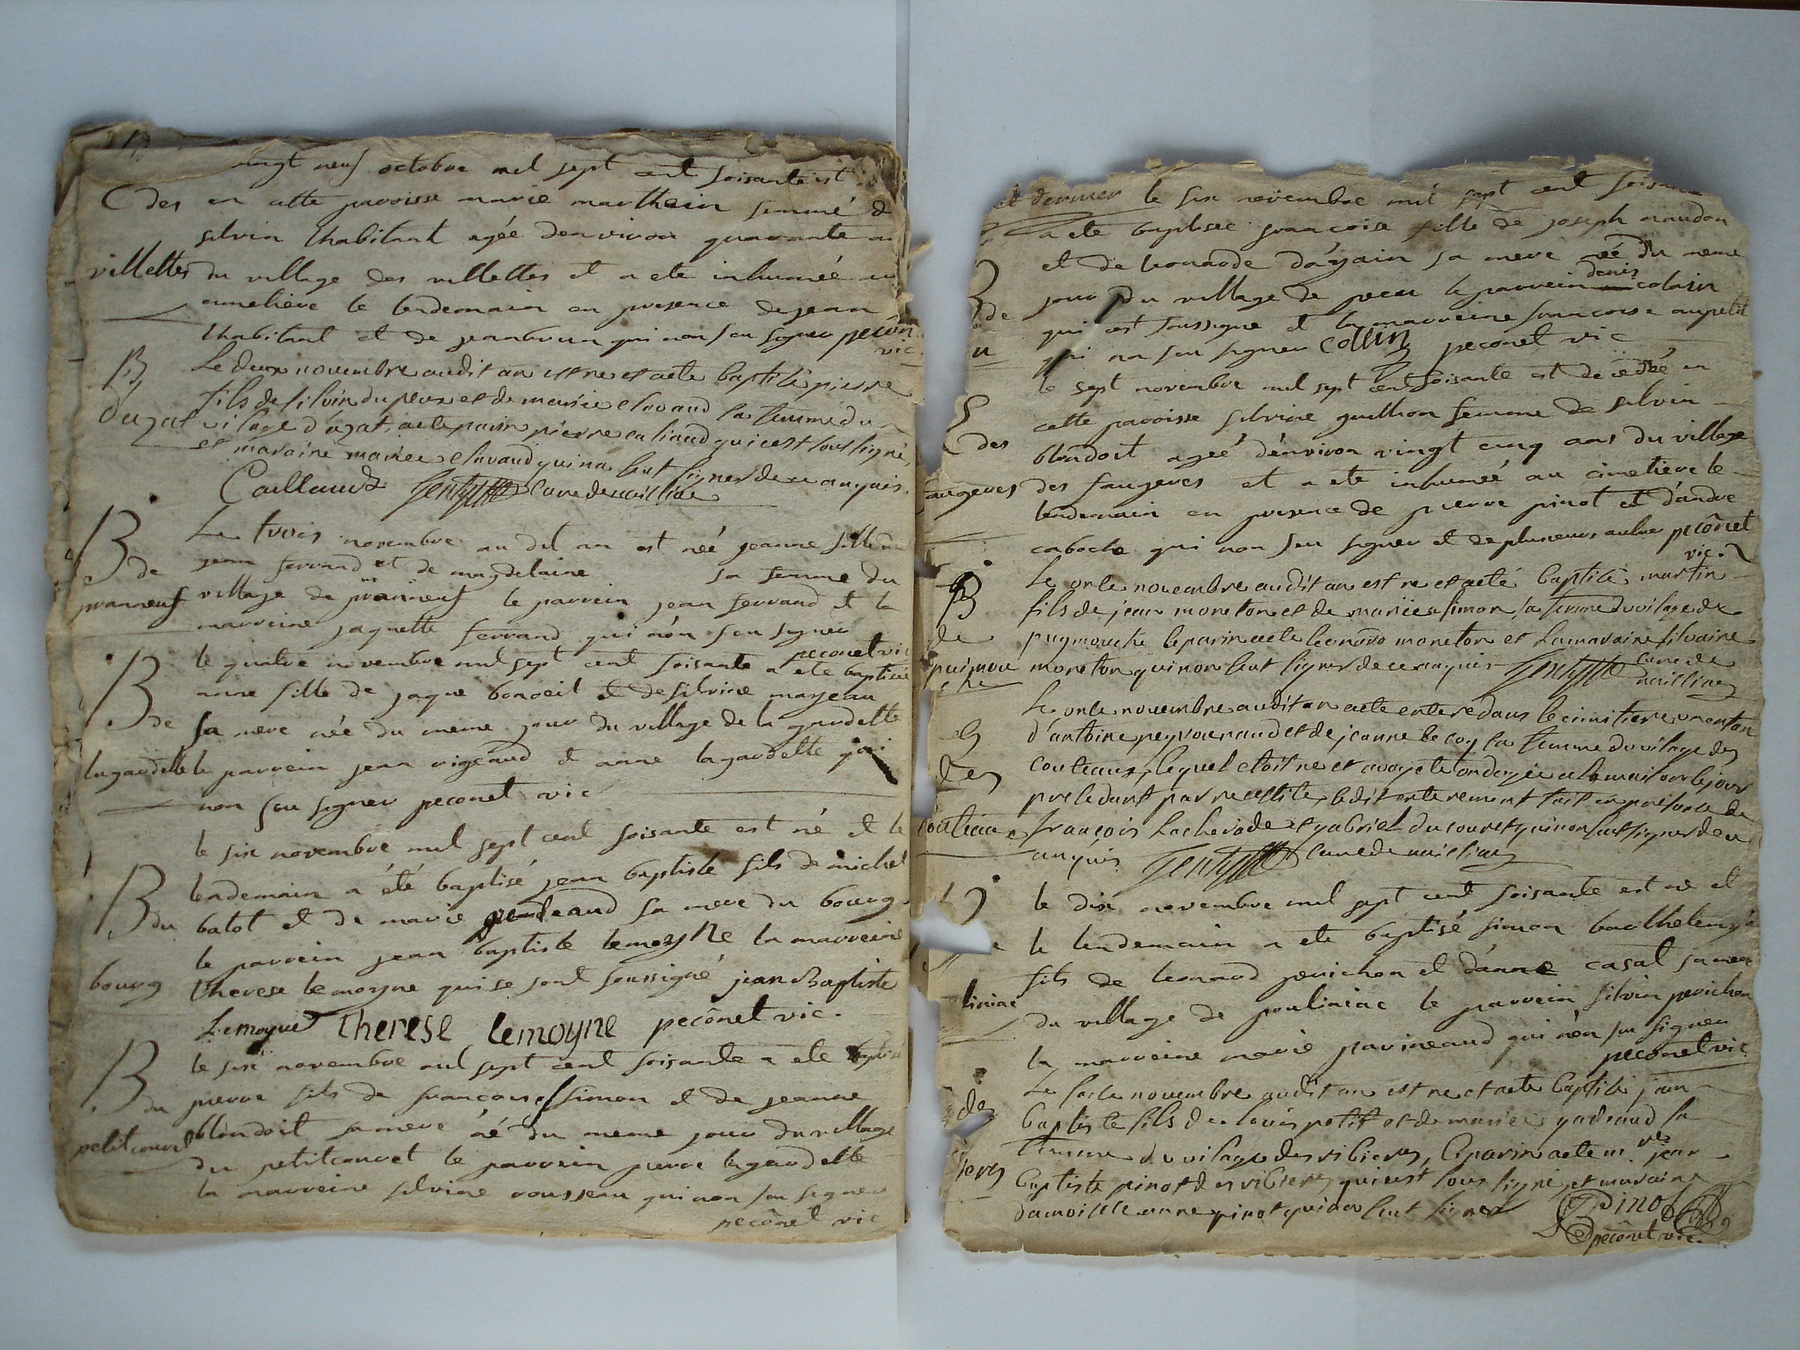 vingt neuf octobre mil sept cent soisante est
C des en cette paroisse marie marthain femme de
silvin lhabitant agée denviron quarante
villettes du village des villettes et a ete inhumée au
cimetiere le lendemain en presence de jean
lhabitant et de jean qui non seu signer peconet
vic
B Le deux novembre audit an est ne et aete baptisé pierre
fils de silvin du peux et de mariee clavaud sa femme du
duzat vilage d'uzat, aete parin pierre caliaud qui cest sous signé,
et maraine mariee clavaud qui na seut signer de ce anquis.
Caillaud curé de naillac
B Le trois novembre au dit an est née jeanne fille de
de jean ferrand et de magdelaine sa femme du
pranneuf village de pranneuf le parrein jean ferrand et la
marreine jaquette ferrand qui n'on seu signer
peconet vic
B le quatre novembre mil sept cent soisante a ete baptisée
anne fille de jaque bonoeil et de silvine marjeau
de sa mere née du meme jour du village de la gaudette
lagaudette le parrein jean rigeaud et anne lagaudette qui
non seu signer peconet vic
le six novembre mil sept cent soisante est né et le
lendemain a été baptisé jean baptiste fils de michel
B du batot et de marie sa mere du bourg
le parrein jean baptiste lemoyne la marreine
bourg therese lemoyne qui se sont soussigné jean Baptiste
Lemoyne therese lemoyne peconet vic.
B le six novembre mil sept cent soisante a ete baptisé
du pierre fils de francois simon et de jeanne
blondoit sa mere né du meme jour du village
petitcouret du petitcouret le parrein pierre lagaudette
la marreine silvine rousseau qui non seu signer
peconet vic
et dernier le six novembre mil sept cent soisante
a ete baptisee francoise fille de joseph naudon
et de leonarde dayain sa mere née du meme
de jour du village de peou le parrein denis colain
qui est soussigné et la marreine francoise aupetit
qui na seu signer Collin peconet vic
le sept novembre mil sept cent soisante est decedée en
cette paroisse silvine guillon femme de silvin
des blondoit agée d'environ vingt cinq ans du village
faugeres des faugeres et a ete inhumée au cimetiere le
lendemain en presence de pierre pinot et d'andre
caboche qui non seu signer et de plusieurs autres peconet
vic.
B Le onze novembre audit an est ne et aeté baptisé martin
fils de jean moreton et de mariee simon, sa femme du vilage de
de puymouche le parin aete leonard moreton et la maraine silvaine
puimou moreton qui non seut signer de ce anquis curé de
che naillac
Le onze novembre audit an aete entere dans le cimitiere un enfan
d'antoine peyrounaud et de jeanne lecoq sa femme du vilage des
des couteaux, lequel etoit ne et avoy ete ondoyée a la maison le jour
precedant par necessite, ledit enterement fait en presence de
couteaux françois lacherade et gabriel ducouret qui non seut signer de ce
anquis curé de naillac
le dix novembre mil sept cent soisante est né et
le lendemain a ete baptisé simon barthelemy
fils de leonard perichon et d'anne casal sa mere
liniac du village de pouliniac le parrein silvin perichon
la marreine marie parineaud qui n'on su signer
peconet vic
Le seze novembre audit an est ne et aete baptisé jean
des baptiste fils de louis petit et de mariee gadeaud sa
femme du vilage des ribieres, le parin aete mre jean
baptiste pinot des ribieres qui est sous signé, et maraine
damoiselle anne pinot qui non seut signer
Pinot
peconet vic.